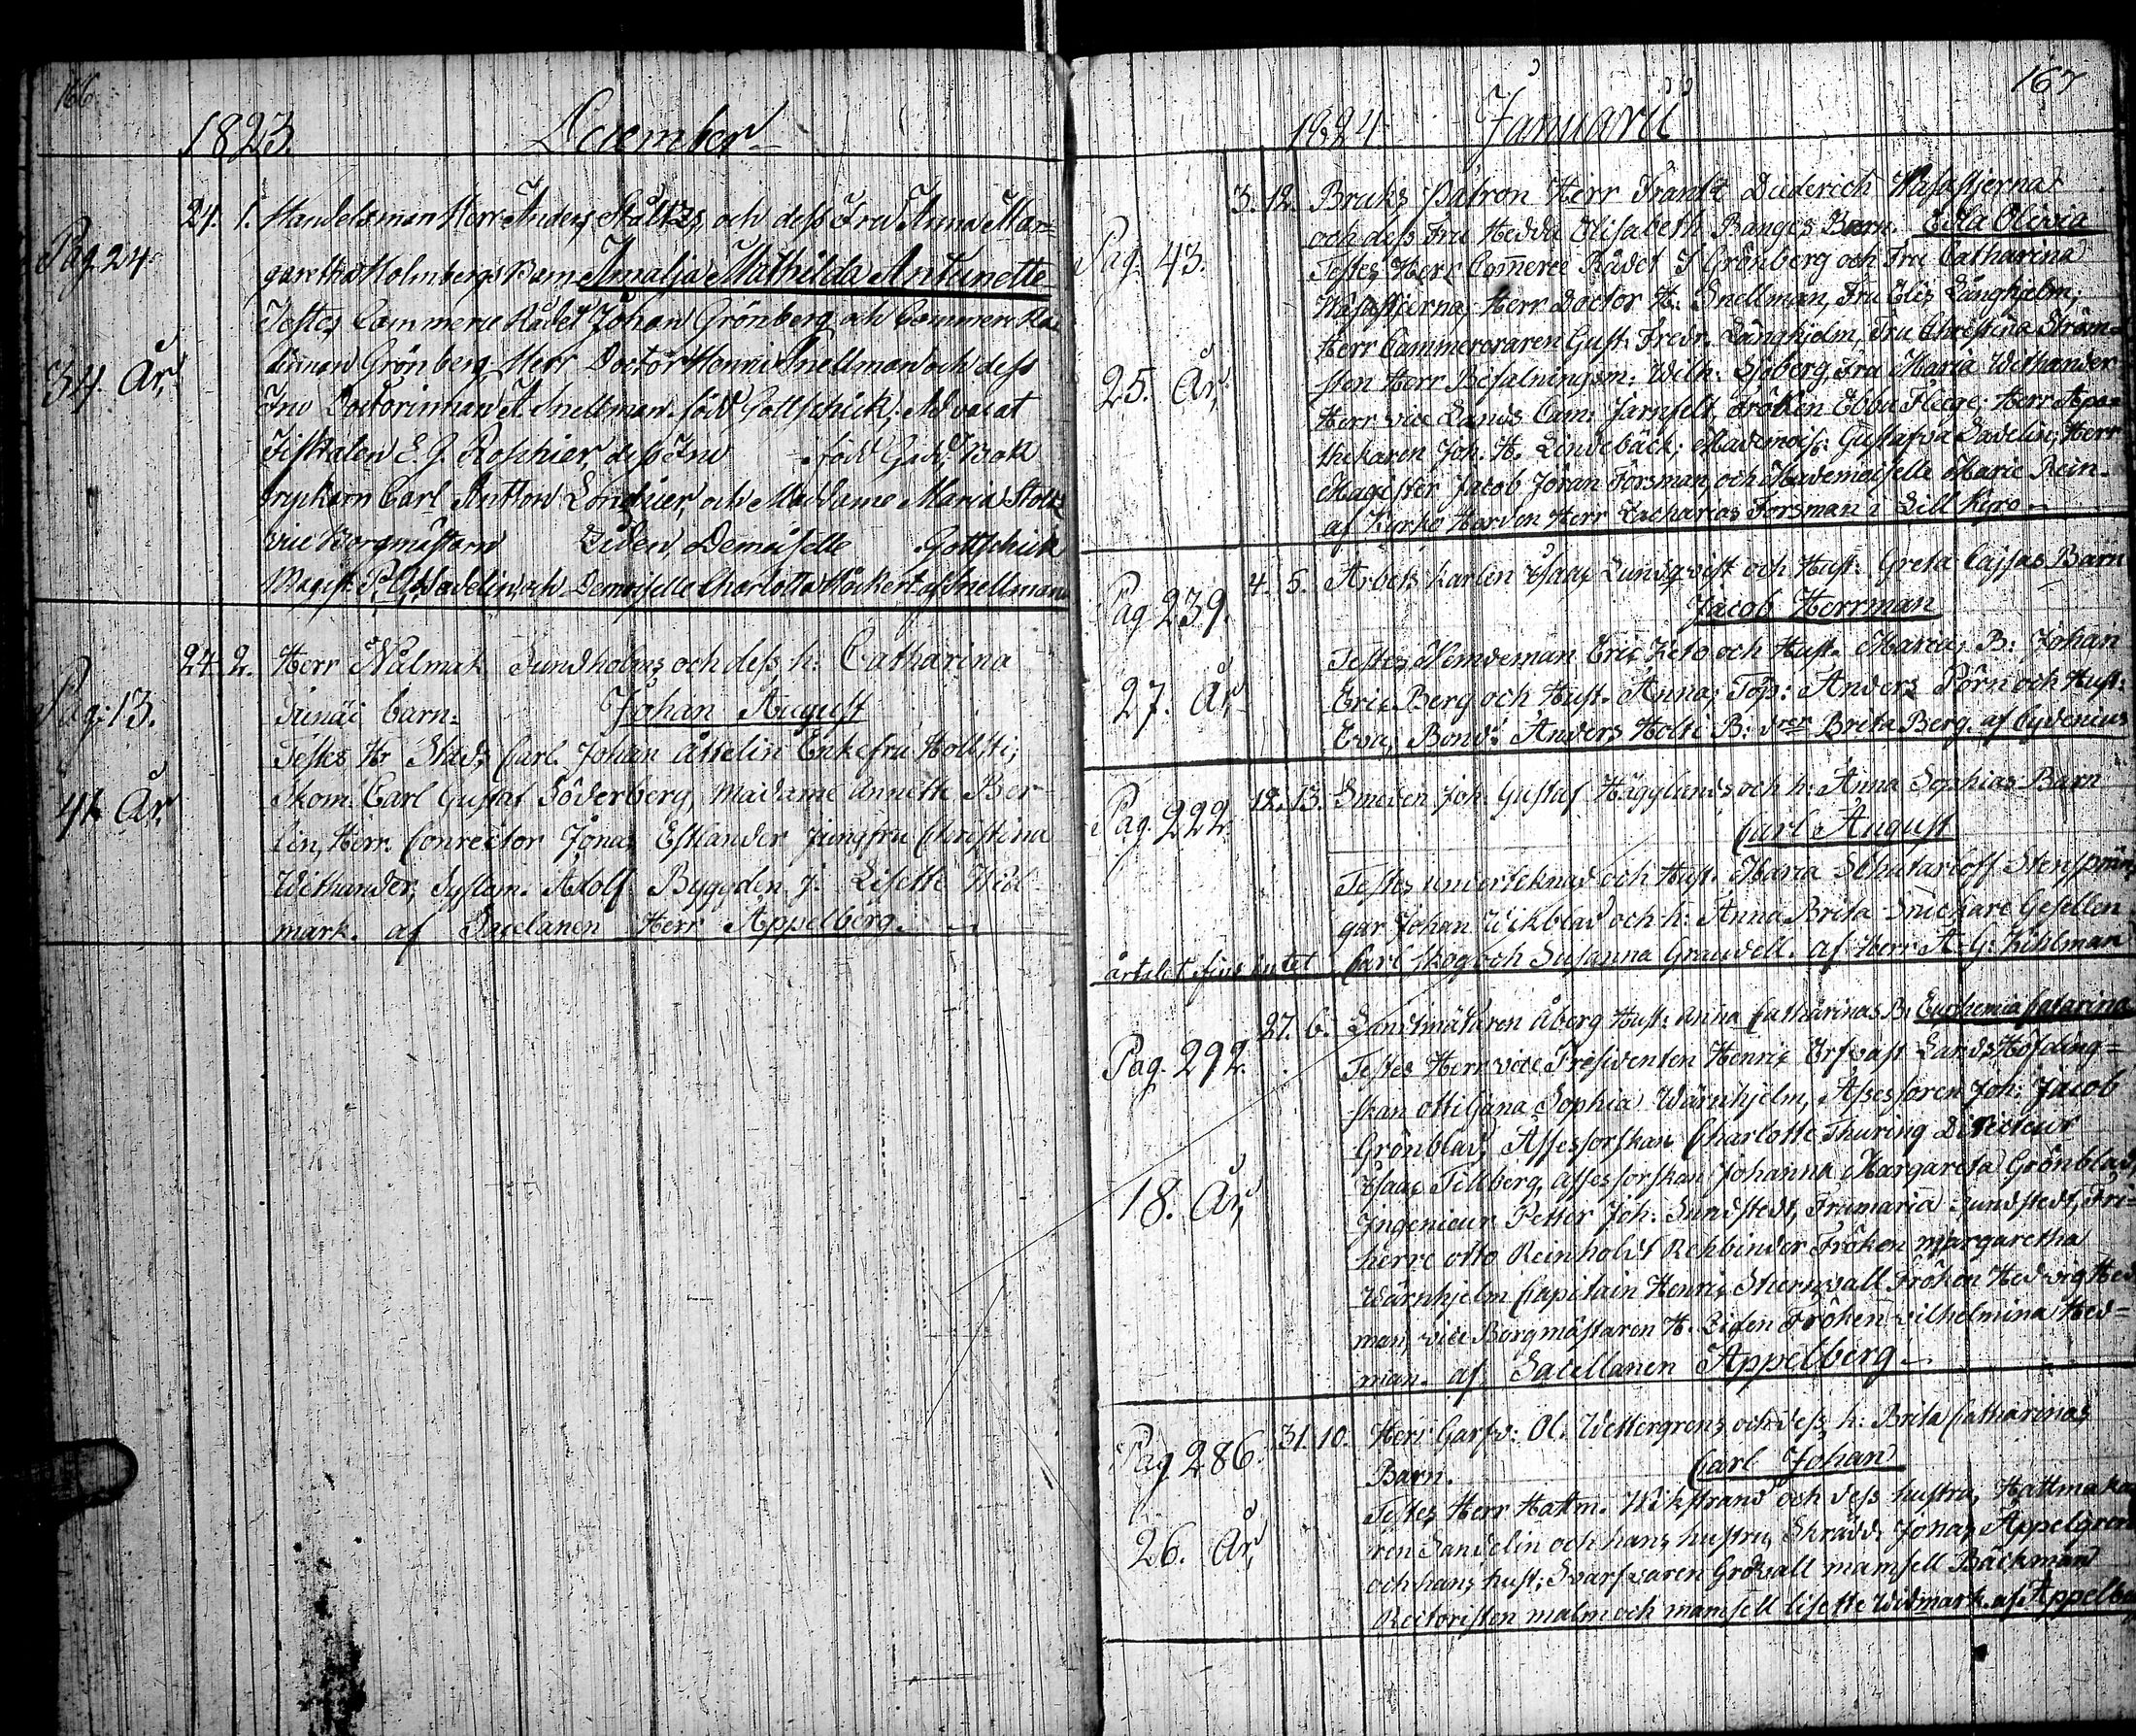 166
1823. December
24. 1. Handelsman Herr Anders Stoltz, och dess Fru Anna Mar=
Pag. 24
garetha Holmbergs Barn Amalja Mathilda Antunette
Testes Commerce Rådet Johan Grönberg och Commerce Rå=
dinnan Grönberg Herr Doctor Henric Snellman och dess
34. År,
Fru Doctorinnan A. Snellman född Gottschick, Advocat
Fiskalen E. J. Roschier, dess Fru född
Carl Anthon Londicer, och Madame Maria Stoltz
vice Borgmästarn Liden Demoiselle Gottschick
Magist. Wadelin, och Demoiselle Charlotta Häckert af Snellman
24. 2. Herr Nålmak. Sundholms och dess h: Catharina
Pag: 13.
barn. Johan August
Testes Hr Skad: Carl Johan Åttelin Enkefru Hollsti;
Skom. Carl Gustaf Söderberg, Madame Annette Ber-
41 År.
lin, Herr Conrector Jonas Estlander Jungfru Christina
Withander, Sysslom. Adolf Byggden J: Lisette Wid-
mark. af Sacelanen Herr Appelberg.
167
1824 Januarii
3. 12. Bruks Patron Herr Frantz Diederich Wasastjerna
Pag. 43.
och dess Fru Hedda Elisabeth Banges Barn. Edla Olivia
Testes Herr Comerce Rådet J Grönberg och Fru Catharina
Wasastjerna; Herr Doctor H. Snellman, Fru Elis Långhjelm;
Herr Cammereraren Gust. Fredr. Långhjelm, Fru Christina Ström=
25. År,
sten Herr Befalningsm: Wilh: Sjöberg, Fru Maria Withander
Herr vice Lands Cam: Jarnfelt, Fröken Ebba Fleege; Herr Apo=
thekaren Joh. H. Lindebäck; Mademois: Gustafva Wadelin; Herr
Magister Jacob Jöran Forsman, och Mademoiselle Marie Rein-
af Kyrko Herden Herr Zacharias Forsman i Lill Kyro
4. 5. Arbets Karlen Isaac Lundqvist och Hust. Greta Cajsas Barn
Pag 239.
Jacob Herrman
Testes Nemdeman Eric Keto och Hust. Maria; B: Johan
27. År
Eric Berg och Hust. Anna; Torp: Anders Pörn och Hust:
Eva; Bond: Anders Holti B: dotter Brita Berg. af Cydenius
12. 13. Smeden Joh: Gustaf Hägglunds och h: Anna Sophias Barn
Pag. 222.
Carl August
Testes undertecknad och Hust. Maria Stenspräng
gar Johan Wikblad och h: Anna Brita Snickare Gesellen
årtalet fins intet Carl Skog och Susanna Grandell. af Herr A. G: Kihlman
27. 6. Landtmätaren Åberg Hust: Anna Catharinas B: Euphemia Catarina
Pag. 292.
Testes Herr vice Presidenten Henric Landshöfding=
skan Ottiliana Sophia Wärnhjelm, Assessoren Joh: Jacob
Grönblad, Assessorskan Charlotte Thuring Directeur
Isaac Tillberg, Assessorskan Johanna Margareta Grönblad,
18. År,
Ingenieur Petter Joh: Sundstedt, Fru Maria Sundstedt, Fri=
herre Otto Reinholdt Rehbinder Fröken Margaretha
Wärnhjelm Capitain Henric Stiernvall Fröken Hedvig Hed
man, vice Borgmästaren H. Liden Fröken Vilhelmina Hed=
man. af Sacellanen Appelberg
31. 10. Herr Garfv: Ol: Wettergrens och dess h: Brita Catharinas
Pag 286.
Barn. Carl Johan
Testes Herr Hattm. Wikstrand och dess hustru, Hattmaka
ren Sandelin och hans hustru, Skrädd. Jonas Appelgren
26. År,
och hans hust; Svarfvaren Grövall mamsell Bäckman
Rectoristen Malm och mamsell Lisette Widmark af Appelberg